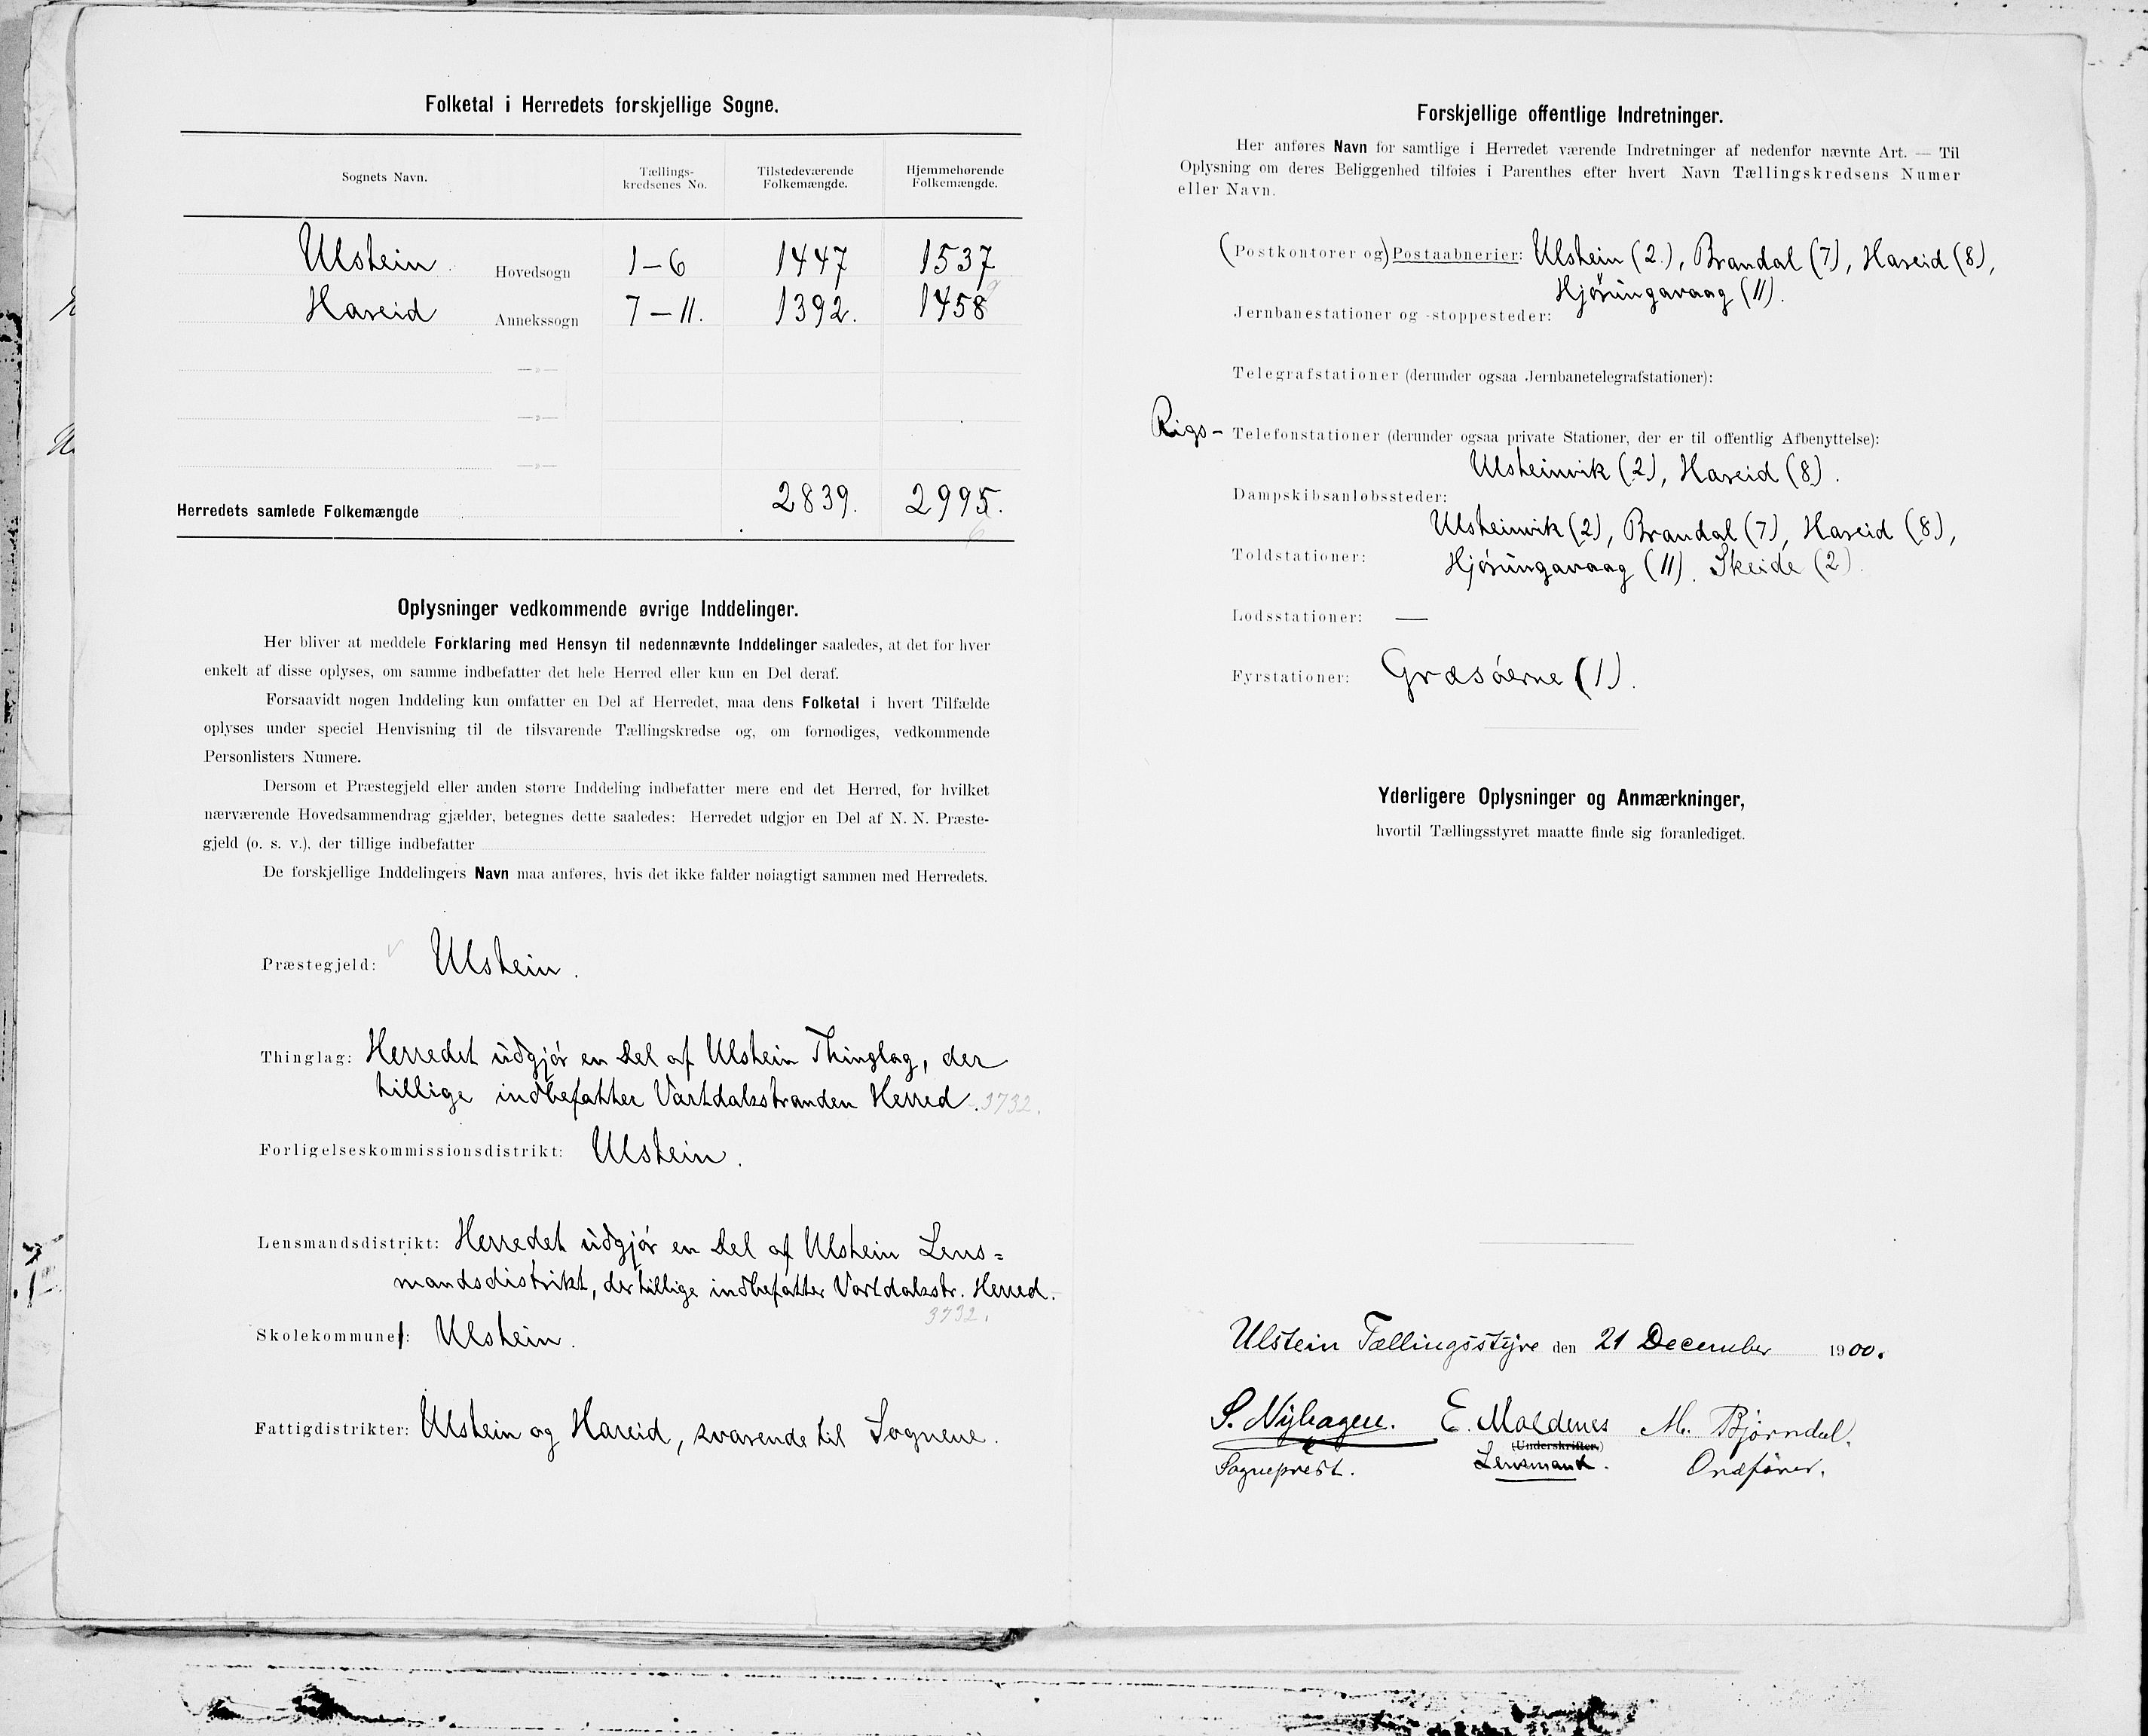 Folketal i Herredets forskjellige Sogne.
Sognets Navn. Tællings-kredsenes No. Tilstedeværende Folkemængde. Hjemmehørende Folkemængde.
Ulstein Hovedsogn 1-6 1447 1537
Hareid Annekssogn 7-11. 1392. 1458
9
—»—
—»—
—»—
Herredets samlede Folkemængde 2839. 2995.
6
Oplysninger vedkommende øvrige Inddelinger.
Her bliver at meddele Forklaring med Hensyn til nedennævnte Inddelinger saaledes, at det for hver
enkelt af disse oplyses, om samme indbefatter det hele Herred eller kun en Del deraf.
Forsaavidt nogen Inddeling kun omfatter en Del af Herredet, maa dens Folketal i hvert Tilfælde
oplyses under speciel Henvisning til de tilsvarende Tællingskredse og, om fornødiges, vedkommende
Personlisters Numere.
Dersom et Præstegjeld eller anden større Inddeling indbefatter mere end det Herred, for hvilket
nærværende Hovedsammendrag gjælder, betegnes dette saaledes: Herredet udgjør en Del af N. N. Præste-
gjeld (o. s. v.), der tillige indbefatter
De forskjellige Inddelingers Navn maa anføres, hvis det ikke falder nøiagtigt sammen med Herredets.
Præstegjeld: Ulstein.
Thinglag: Herredet udgjør en Del af Ulstein Thinglag, der
tillige indbefatter Vartdalsstranden Herred. 3732.
Forligelseskommissionsdistrikt: Ulstein.
Lensmandsdistrikt: Herredet udgjør en Del af Ulstein Lens=
mandsdistrikt, der tillige indbefatter Vartdalsstr. Herred.
3732.
Skolekommune: Ulstein.
Fattigdistrikter: Ulstein og Hareid, svarende til Sognene.
Forskjellige offentlige Indretninger.
Her anføres Navn for samtlige i Herredet værende Indretninger af nedenfor nævnte Art. — Til
Oplysning om deres Beliggenhed tilføies i Parenthes efter hvert Navn Tællingskredsens Numer
eller Navn.
(Postkontorer og) Postaabnerier: Ulstein (2.), Brandal (7), Hareid (8),
Hjørungavaag (11).
Jernbanestationer og -stoppesteder:
Telegrafstationer (derunder ogsaa Jernbanetelegrafstationer):
Rigs- Telefonstationer (derunder ogsaa private Stationer, der er til offentlig Afbenyttelse):
Ulsteinvik (2), Hareid (8).
Dampskibsanløbssteder:
Ulsteinvik (2), Brandal (7), Hareid (8),
Toldstationer: Hjørungavaag (11). Skeide (2).
Lodsstationer: —
Fyrstationer: Græsøerne (1).
Yderligere Oplysninger og Anmærkninger,
hvortil Tællingsstyret maatte finde sig foranlediget.
Ulstein Tællingsstyre den 21 December 1900.
S. Nyhagen. E. Moldenes M. Bjørndal.
(Underskrifter.)
Sogneprest. Lensmand. Ordfører.